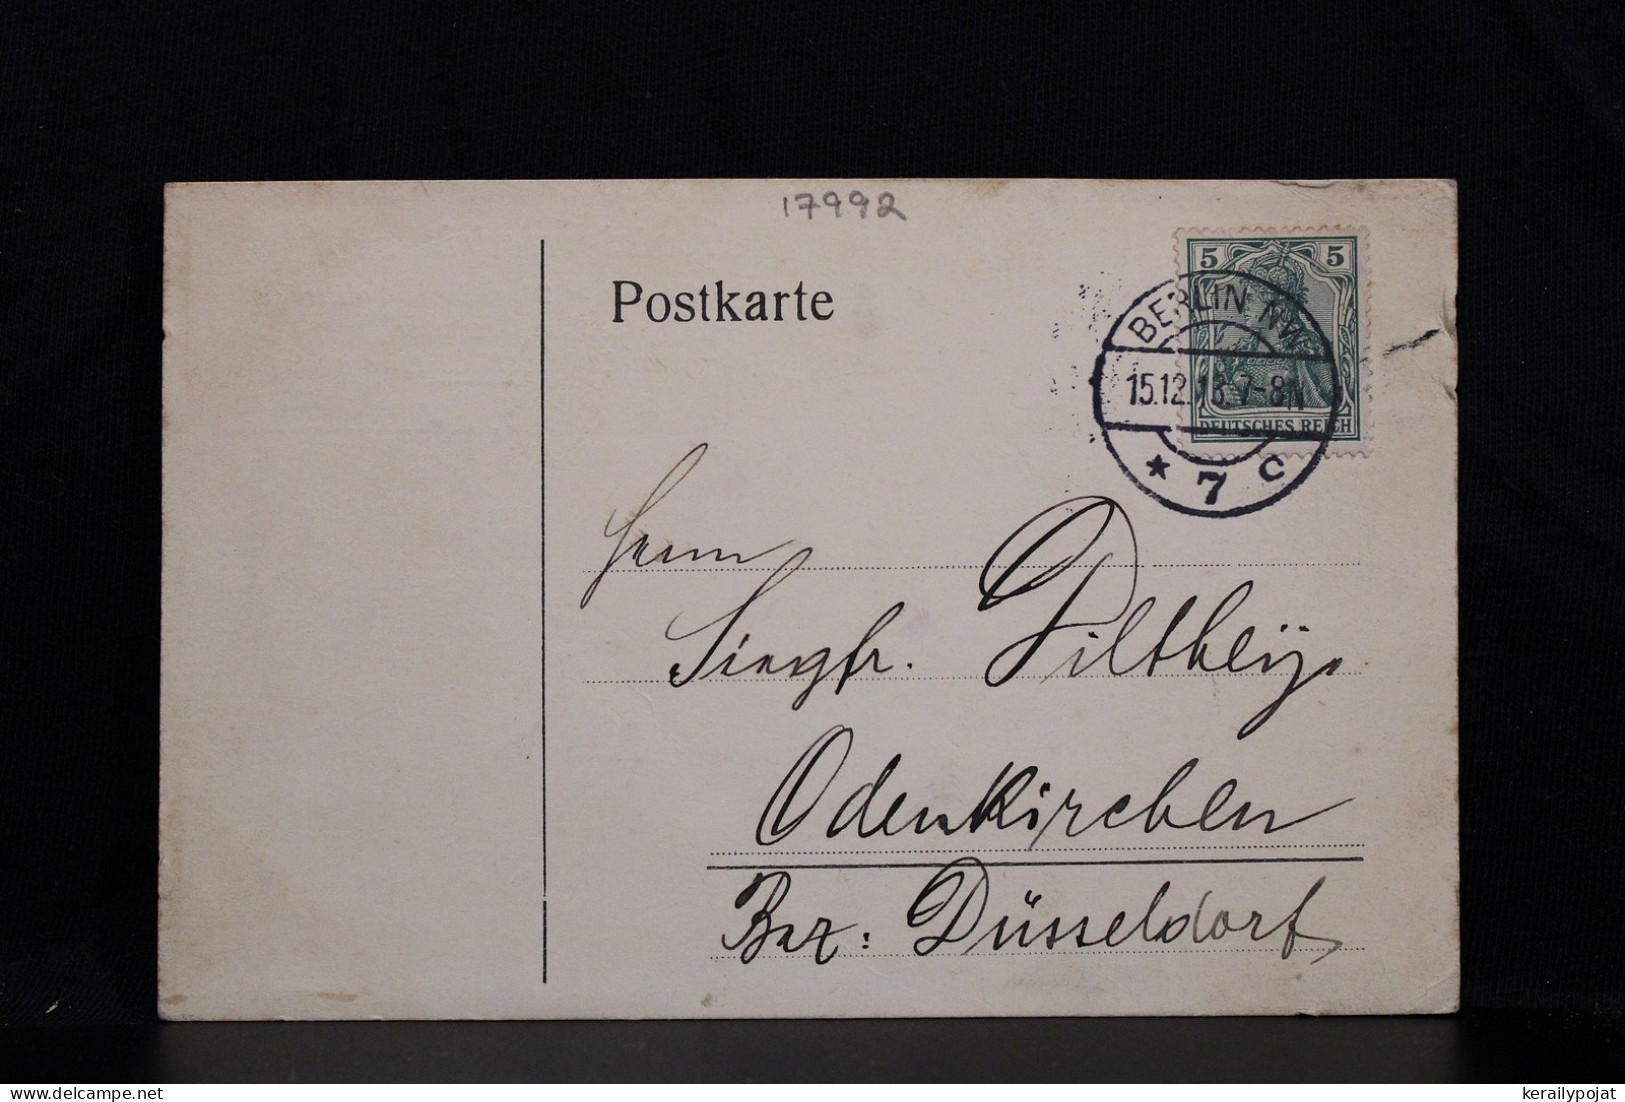 17992
Postkarte
5 5
BERLIN NW
15.12.13. 7-8N
DEUTSCHES REICH
* 7 c
Herrn
Siegfr. Diltheÿ.
Odenkirchen
Bez: Düsseldorf
delcampe.net
kerailypojat